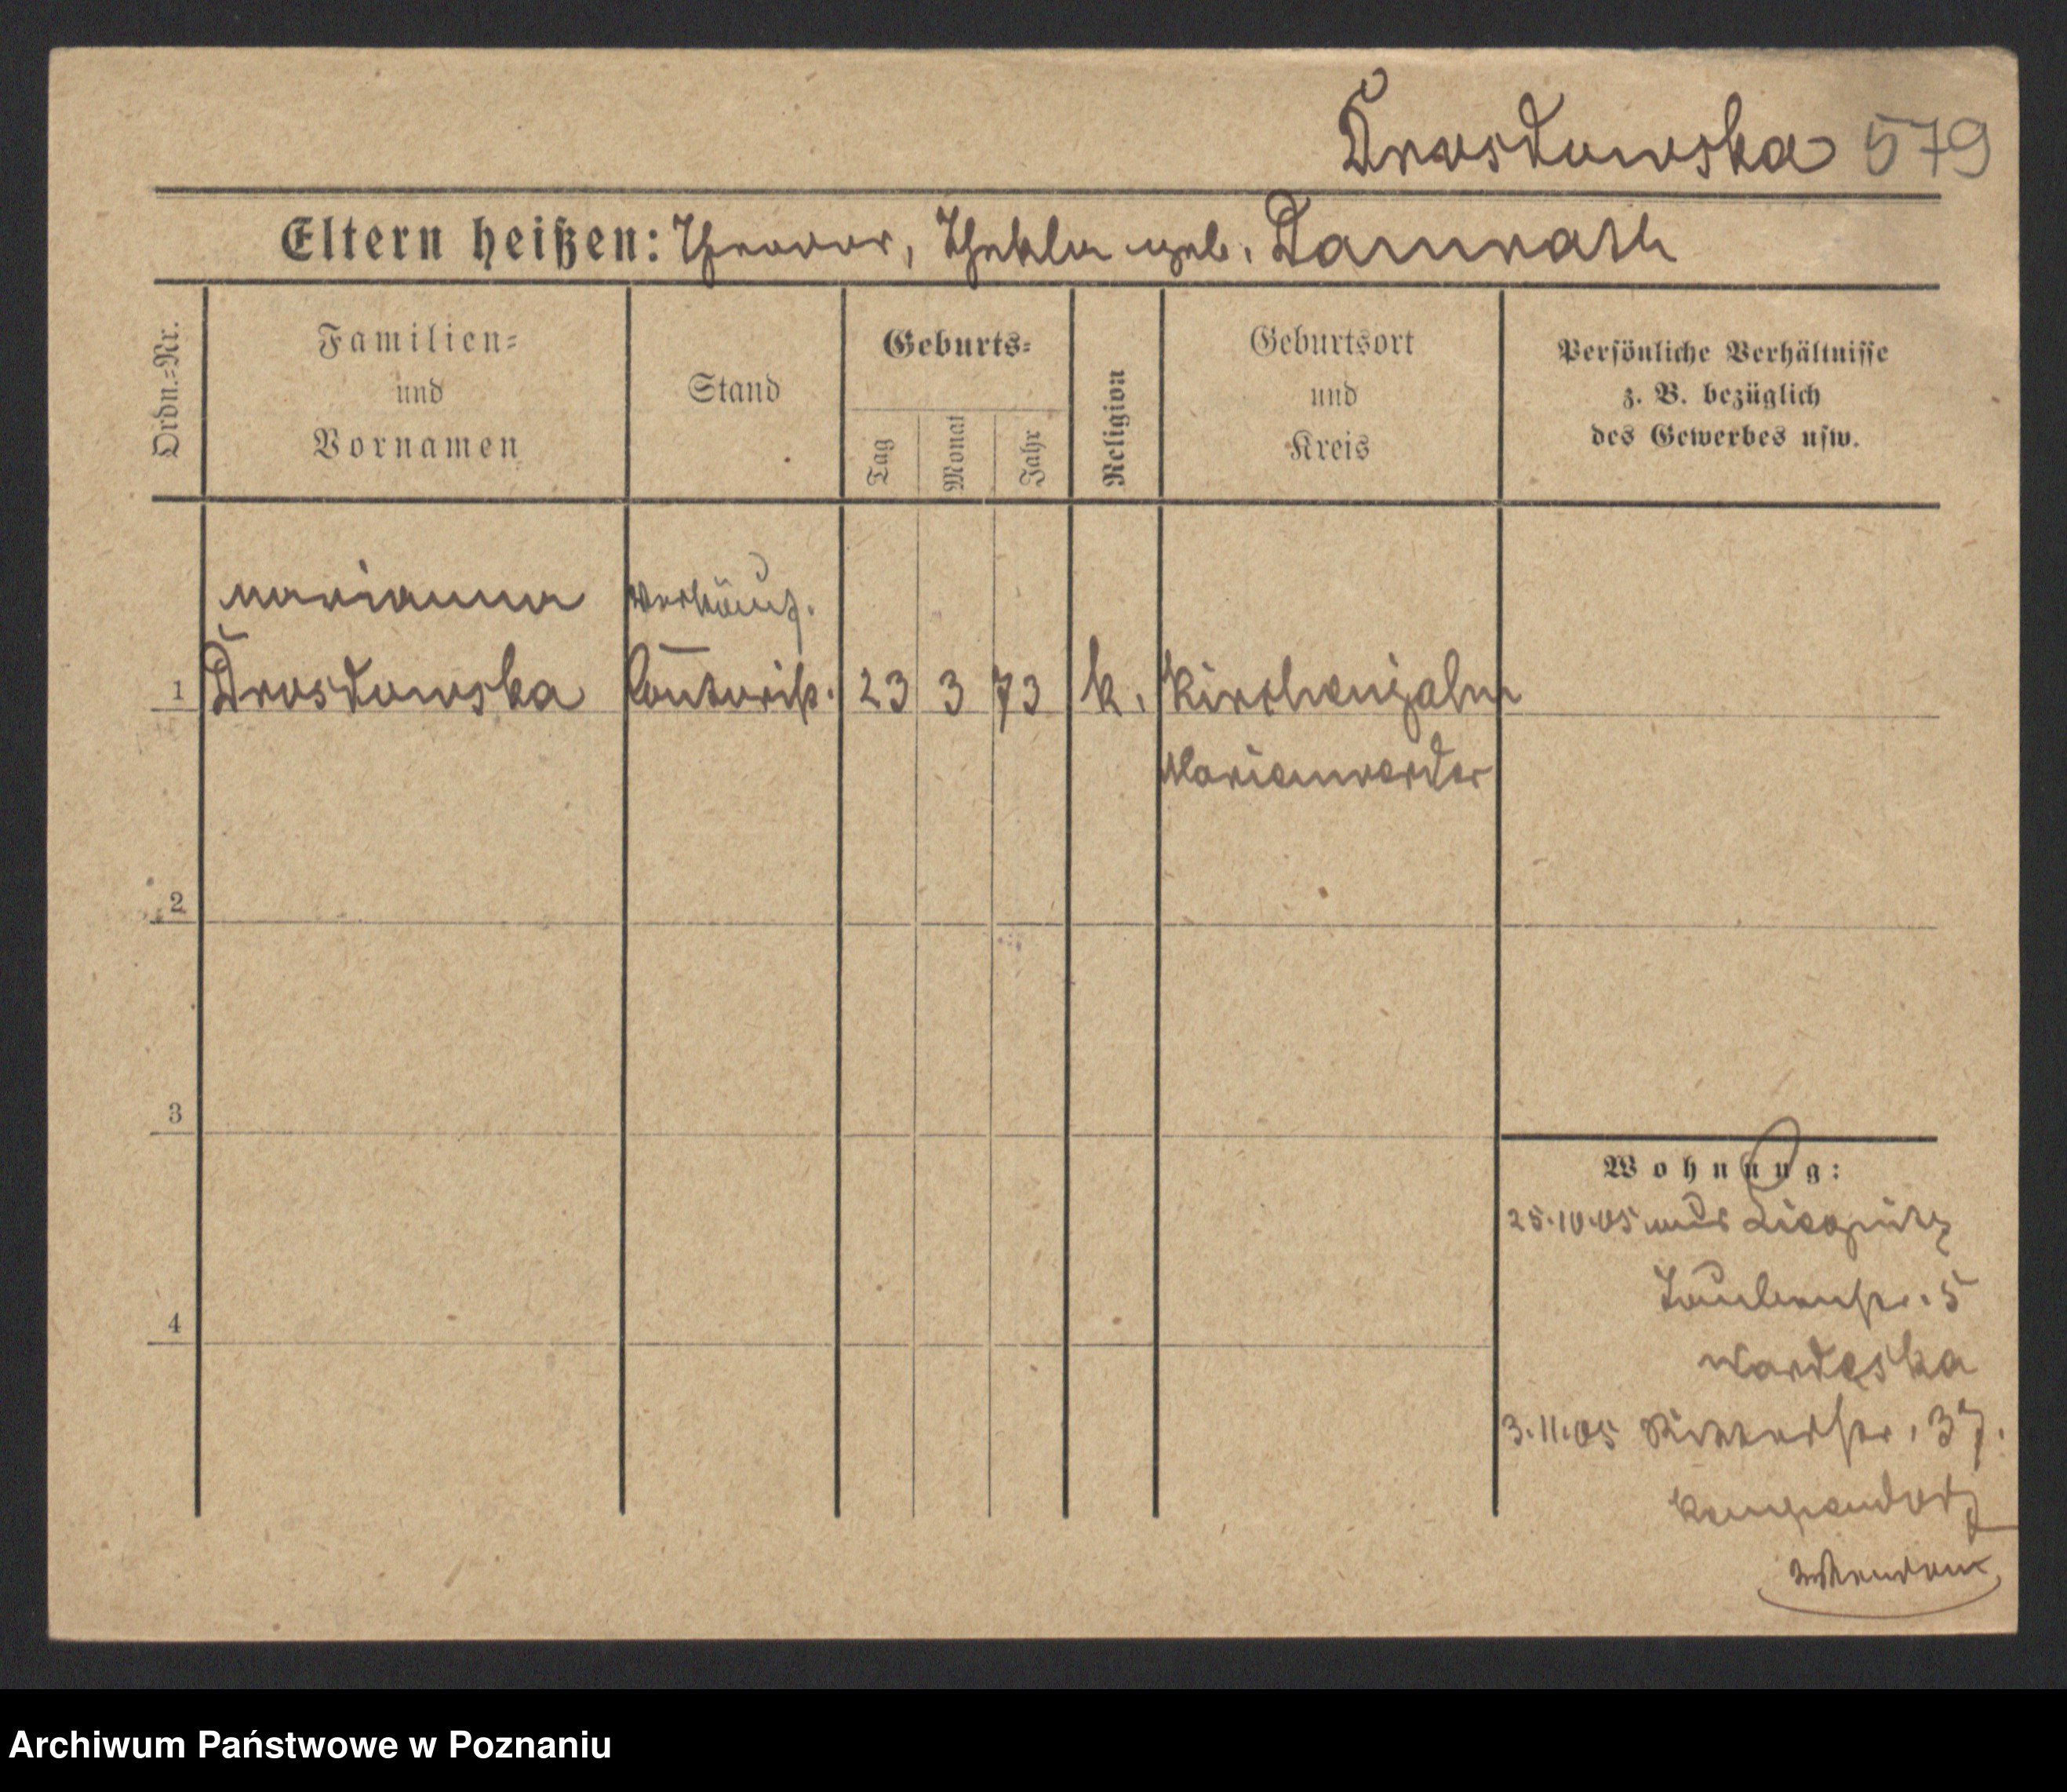 Drosdowska 579
Eltern heißen: Theodor, Thekla geb. Damrath
Ordn.=Nr.
Familien=
und
Vornamen
Stand
Geburts=
Tag
Monat
Jahr
Religion
Geburtsort
und
Kreis
Persönliche Verhältnisse
z. B. bezüglich
des Gewerbes usw.
Marianna
1 Drosdowska 23 3 73 k. Kirchenjahn
Marienwerder
2
3
4
Wohnung:
25.10.05 aus
Taubenstr. 5
3.11.05 Ritterstr. 37.
Archiwum Państwowe w Poznaniu